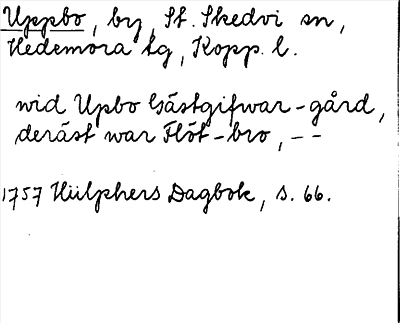 Uppbo, by, St. Skedvi sn,
Hedemora tg, Kopp. l.
wid Upbo Gästgifwar-gård,
deräst war Flöt-bro, --
1757 Hülphers Dagbok, s. 66.